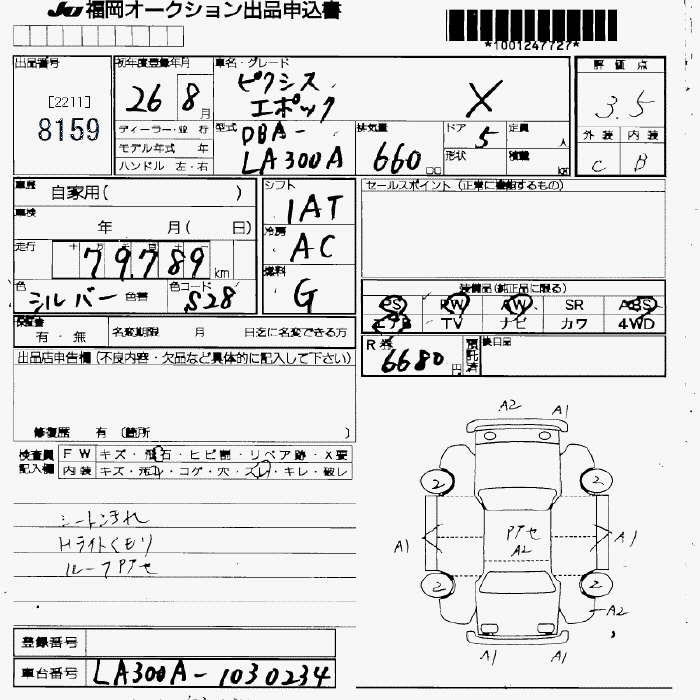 JU福岡オークション出品申込書
*1001247727*
出品番号
[2211]
8159
初年度登録年月
26 8月
ディーラー・並行
モデル年式 年
ハンドル 左・右
車名・グレード
ピクシス
エポック
X
型式
DBA-
LA300A
排気量
660cc
ドア
5
形状
定員
人
積載
kg
評価点
3.5
外装 内装
C B
車歴
自家用( )
車検
年 月( 日)
走行
79,789km
色
シルバー 色替
色コード
S28
シフト
IAT
冷房
AC
燃料
G
セールスポイント(正常に機能するもの)
装備品(純正品に限る)
PS PW AW SR ABS
エアB TV ナビ カワ 4WD
保証書
有・無
名変期限 月 日迄に名変できる方
R券
6680円
預託済
後日品
出品店申告欄(不良内容・欠品など具体的に記入して下さい)
修復歴 有 (箇所 )
検査員
記入欄
FW キズ・飛石・ヒビ割・リペア跡・X要
内装 キズ・汚レ・コゲ・穴・スレ・キレ・破レ
Hライトくもり
ルーフアセ
A2 A1
2 2
A1 アセ A2 A1
2 2
A2
A1 A1
登録番号
車台番号
LA300A-1030234